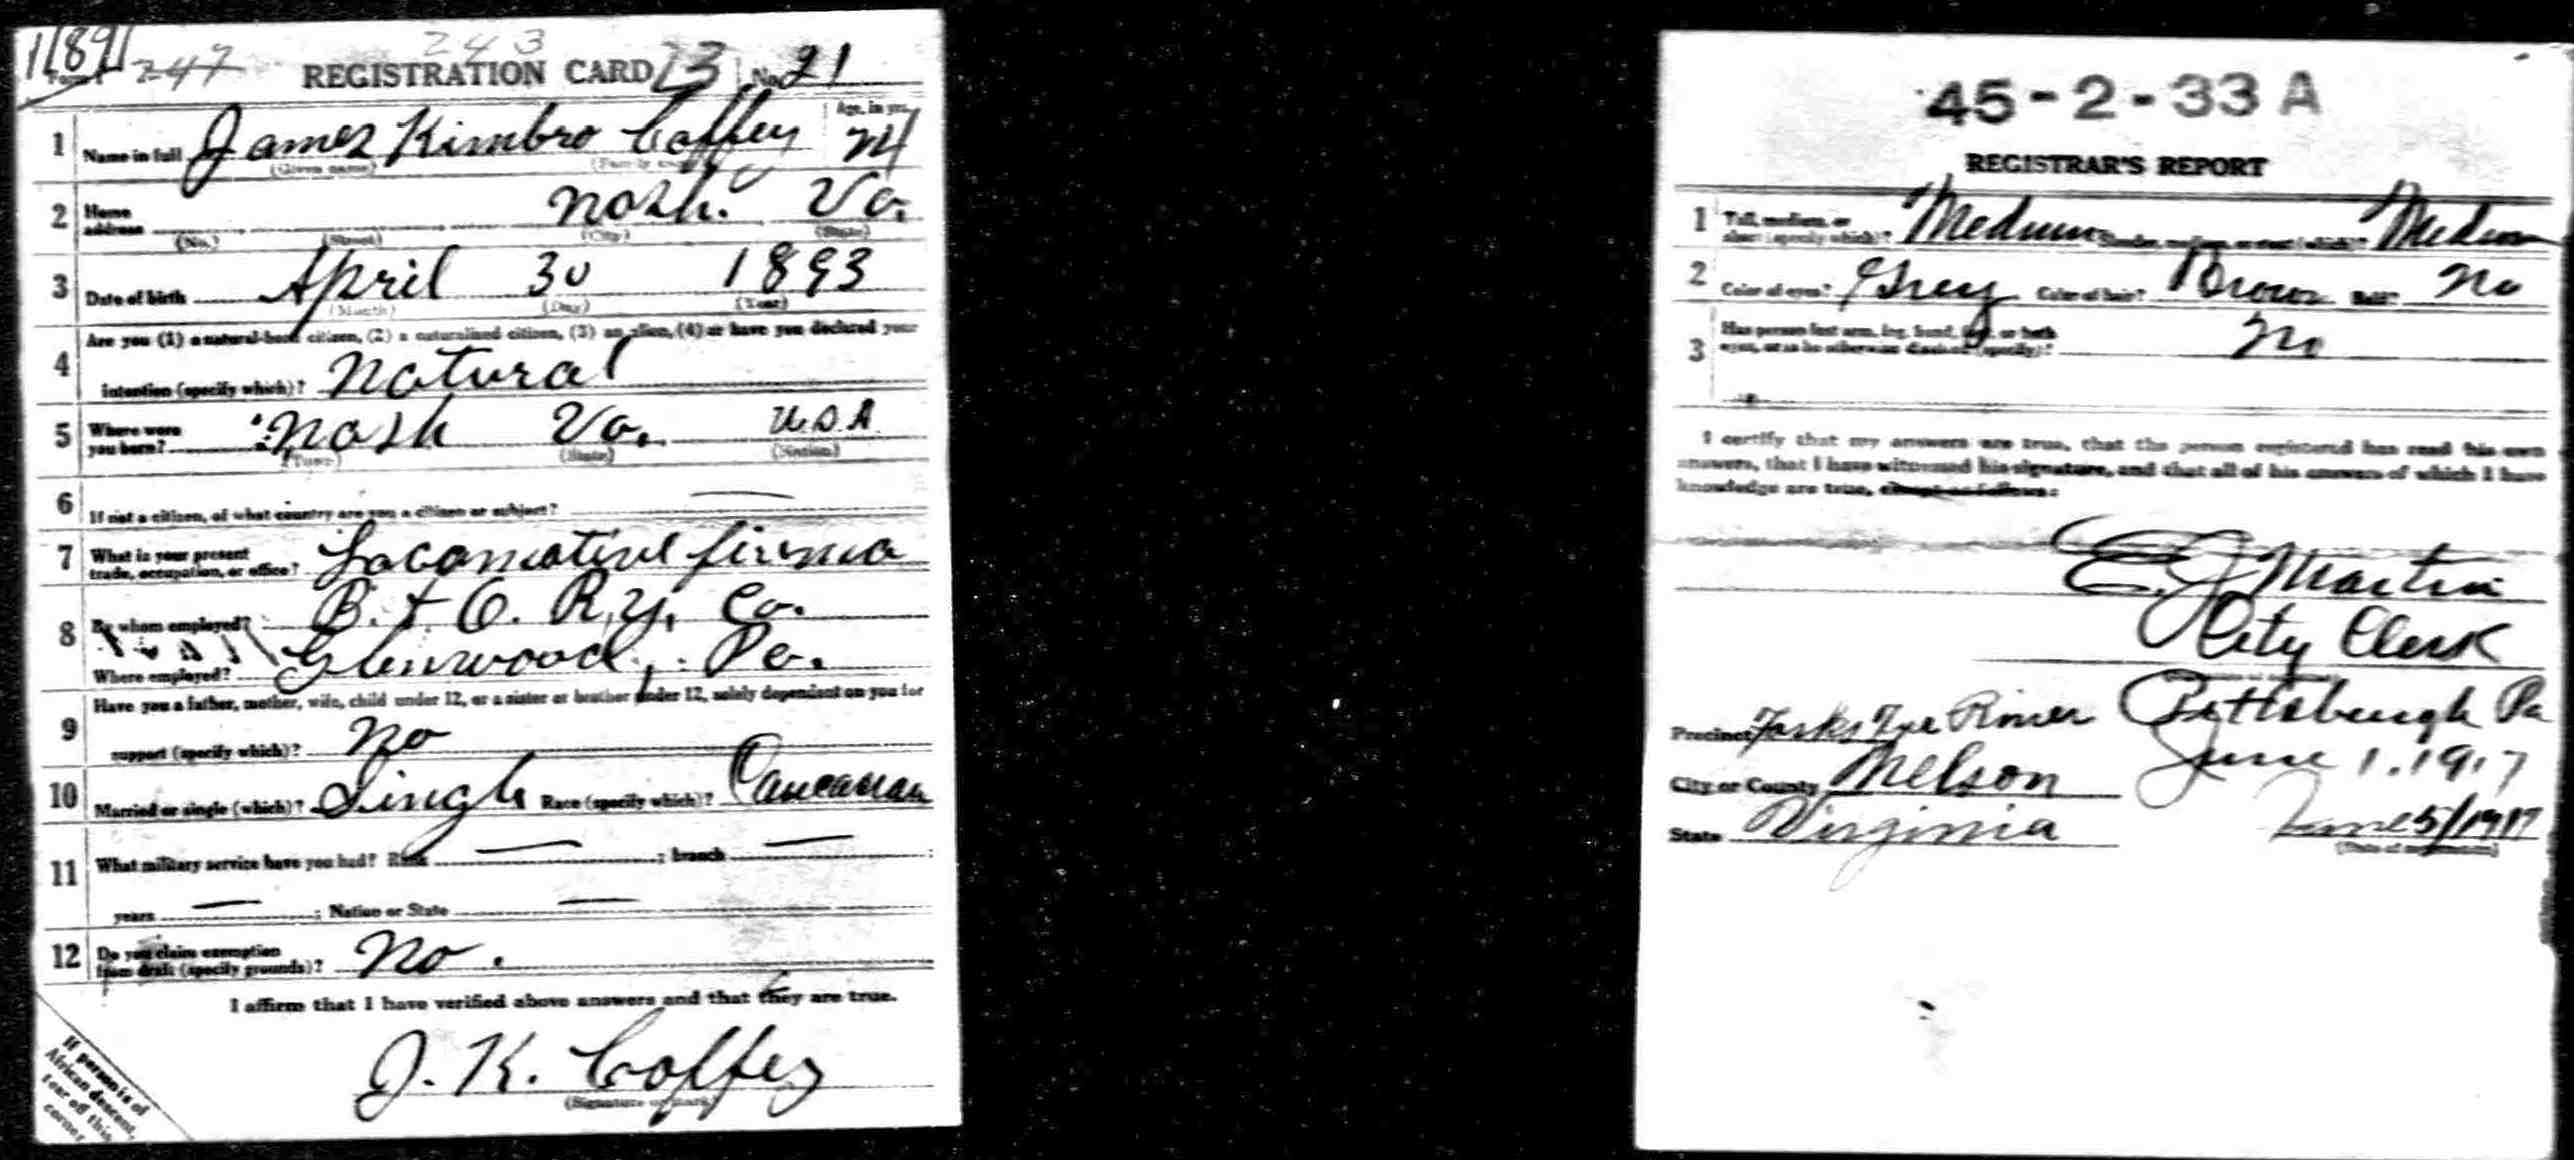 1189 247 243
REGISTRATION CARD 23 No. 21
1 Name in full James Kimbro Coffey Age, in yrs. 24
(Given name) (Family name)
2 Home address Nash. Va.
(No.) (Street) (City) (State)
3 Date of birth April 30 1893
(Month) (Day) (Year)
Are you (1) a natural-born citizen, (2) a naturalized citizen, (3) an alien, (4) or have you declared your
4 intention (specify which)? Natural
5 Where were you born? Nash Va. U.S.A.
(Town) (State) (Nation)
6 If not a citizen, of what country are you a citizen or subject? —
7 What is your present trade, occupation, or office? Locomotive firema
8 By whom employed? B. + O. R.y. Co.
Where employed? Glenwood, Pa.
Have you a father, mother, wife, child under 12, or a sister or brother under 12, solely dependent on you for
9 support (specify which)? No
10 Married or single (which)? Single Race (specify which)? Caucasian
11 What military service have you had? Rank — ; branch — ;
years — ; Nation or State —
12 Do you claim exemption from draft (specify grounds)? No.
I affirm that I have verified above answers and that they are true.
J. K. Coffey
(Signature or mark)
If person is of
African descent,
tear off this
corner
45-2-33 A
REGISTRAR'S REPORT
1 Tall, medium, or short (specify which)? Medium Slender, medium, or stout (which)? Medium
2 Color of eyes? Grey Color of hair? Brown Bald? No
3 Has person lost arm, leg, hand, foot, or both
eyes, or is he otherwise disabled (specify)? No
I certify that my answers are true, that the person registered has read his own
answers, that I have witnessed his signature, and that all of his answers of which I have
knowledge are true, except as follows:
E. J. Martin
City Clerk
Precinct Forks Tye River Pittsburgh Pa
City or County Nelson June 1. 1917
State Virginia June 5/1917
(Date of registration)